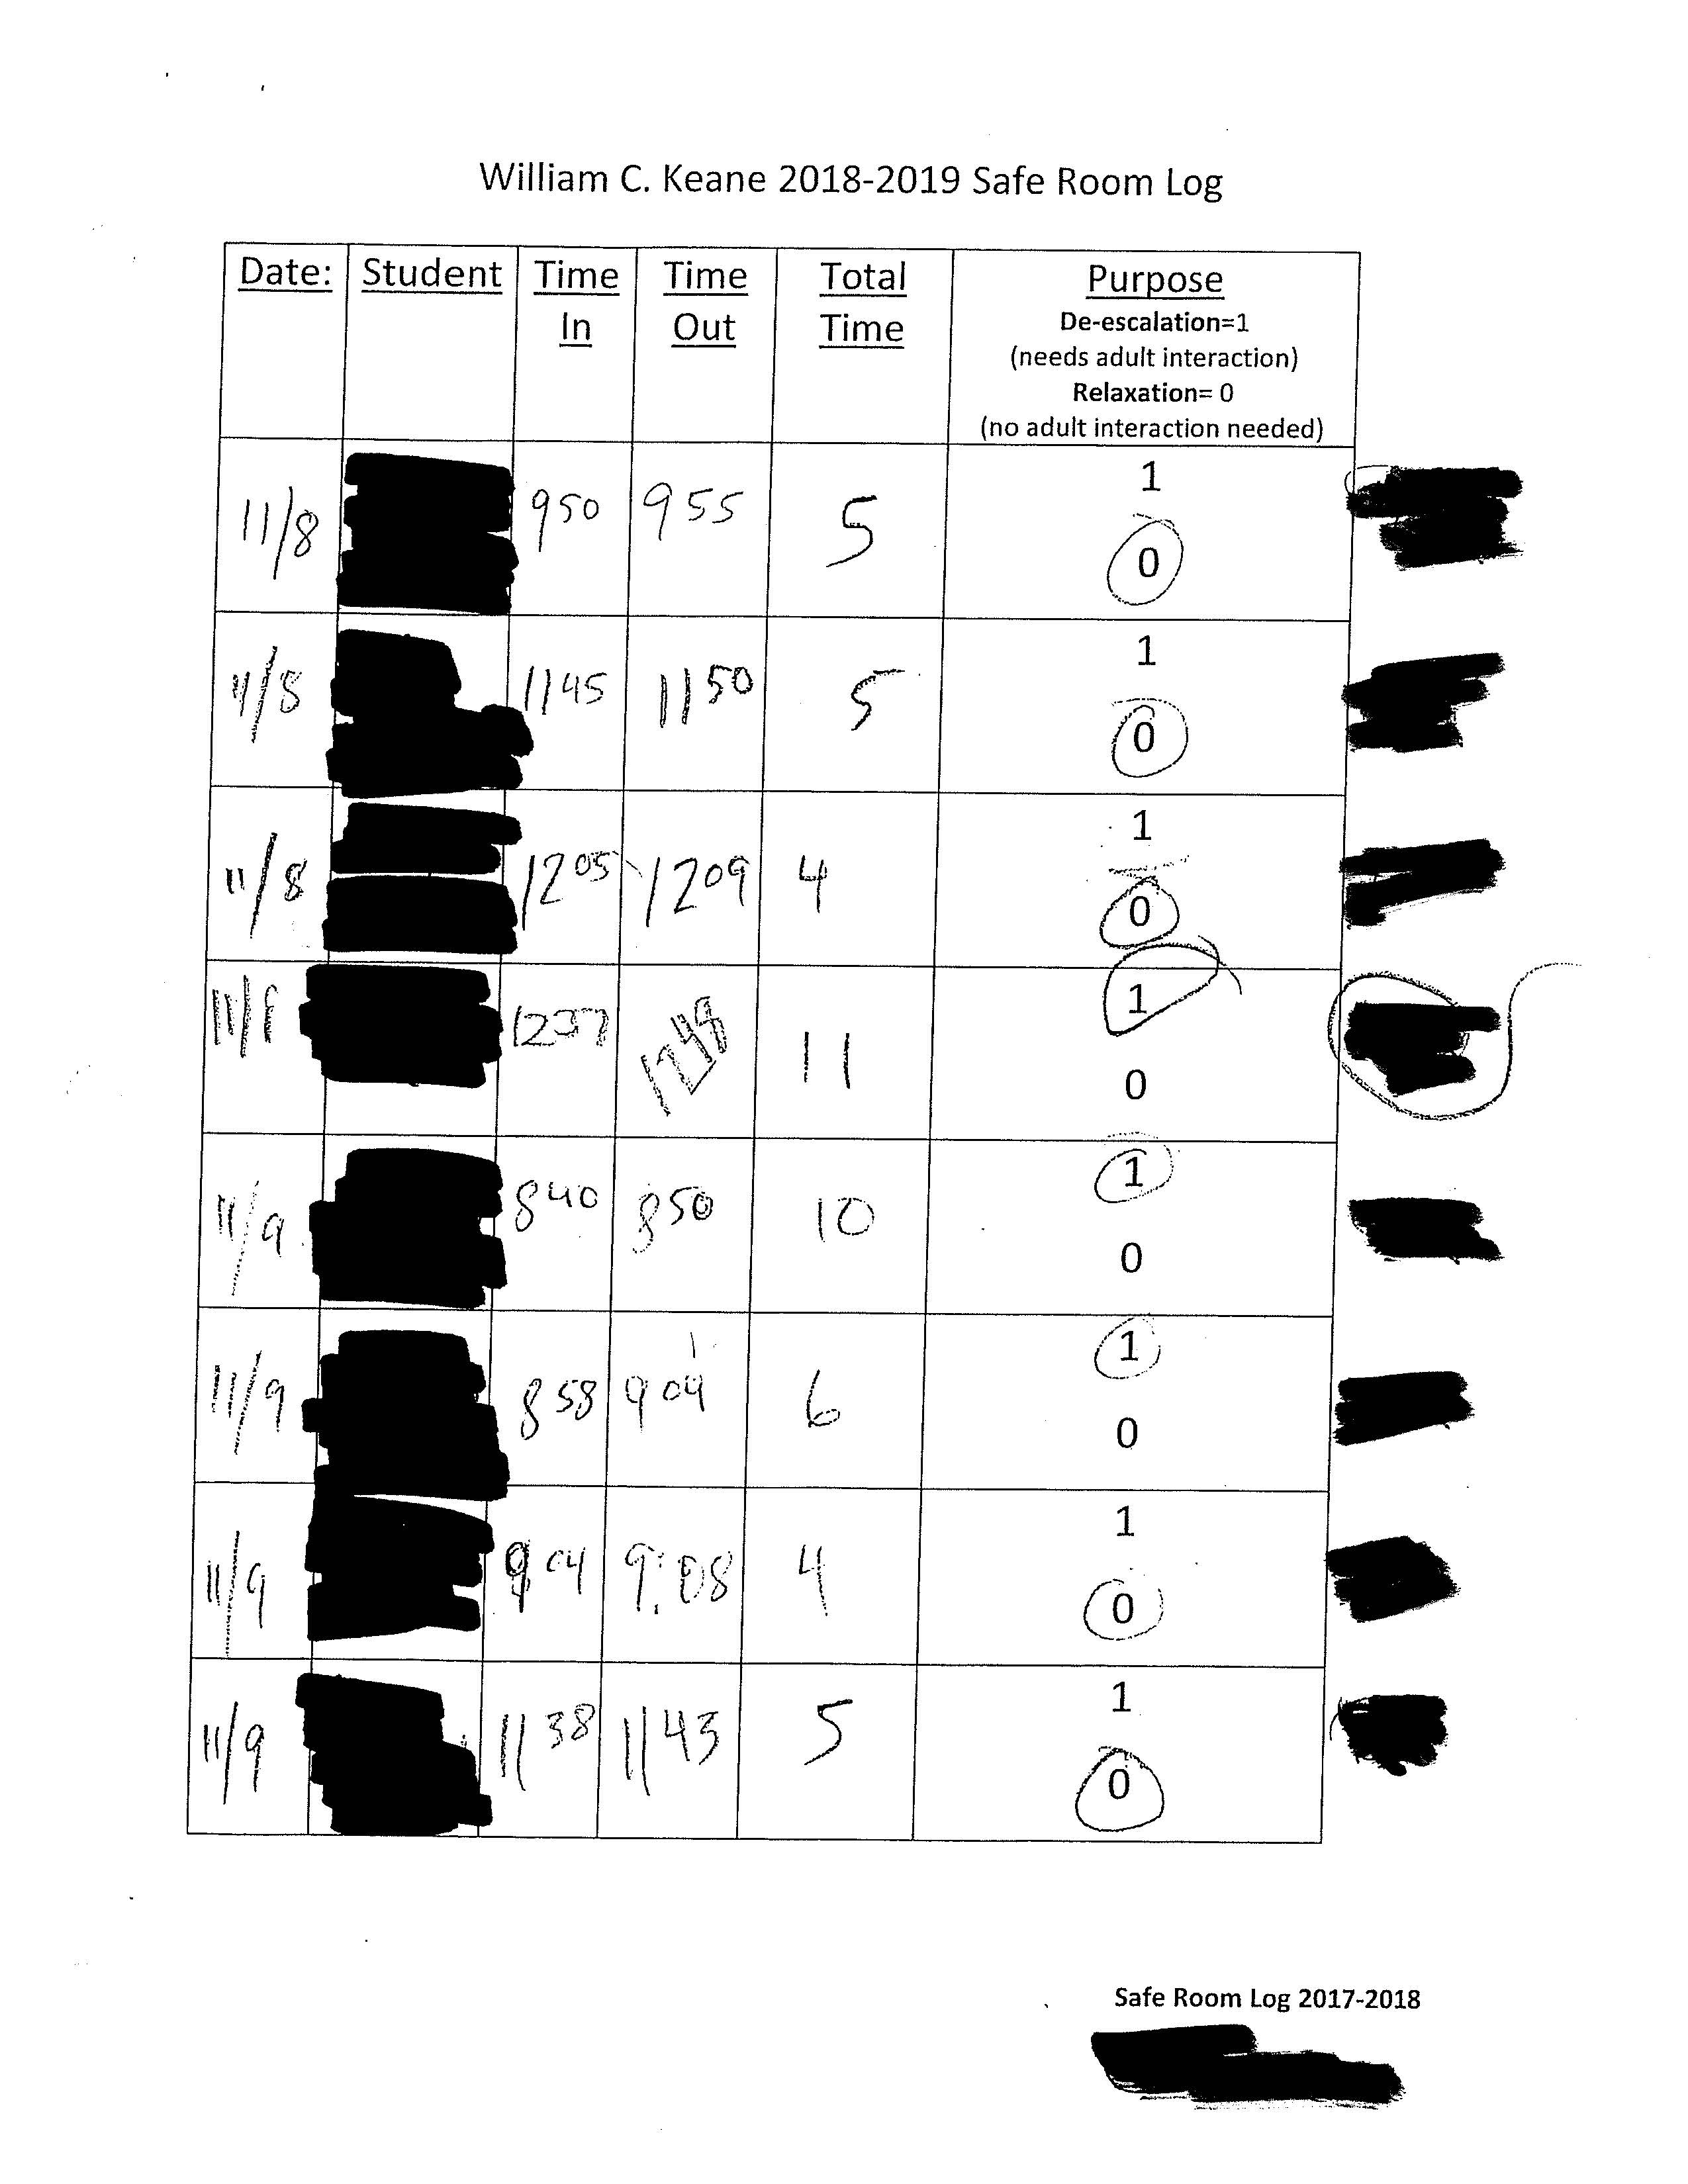 William C. Keane 2018-2019 Safe Room Log
Date: Student Time In Time Out Total Time Purpose
De-escalation=1
(needs adult interaction)
Relaxation= 0
(no adult interaction needed)
11/8 950 955 5 1 0
11/8 1145 1150 5 1 0
11/8 1205 1209 4 1 0
11/8 1237 1248 11 1 0
11/9 840 850 10 1 0
11/9 858 904 6 1 0
11/9 904 9:08 4 1 0
11/9 1138 1143 5 1 0
Safe Room Log 2017-2018